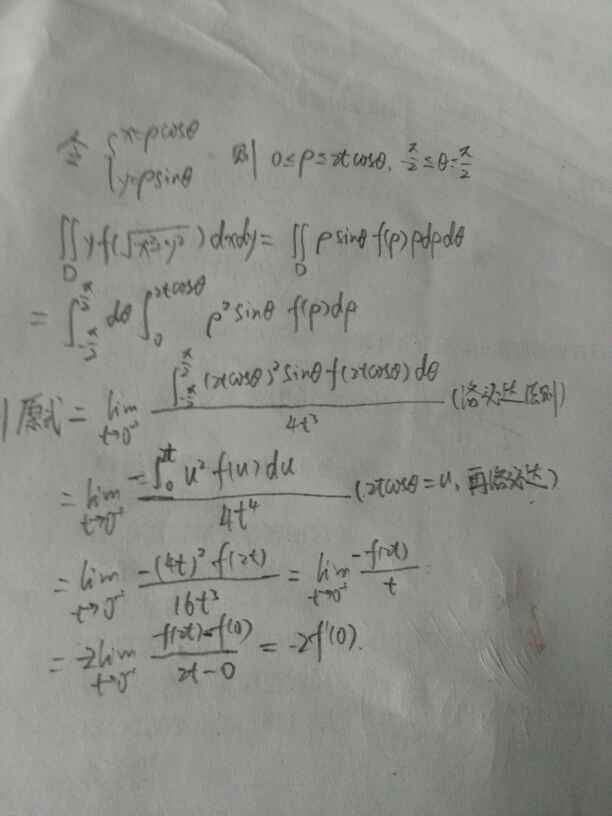 令 { x=ρcosθ y=ρsinθ 则 0≤ρ≤2tcosθ, π/2≤θ≤π/2
∬_D yf(√(x²+y²))dxdy = ∬_D ρsinθ f(ρ)ρdρdθ
= ∫_{-π/2}^{π/2} dθ ∫_0^{2tcosθ} ρ²sinθ f(ρ)dρ
原式 = lim_{t→0⁺} ∫_{-π/2}^{π/2} (2tcosθ)²sinθ f(2tcosθ)dθ / 4t³ (洛必达法则)
= lim_{t→0⁺} -∫_0^{2t} u² f(u)du / 4t⁴ (2tcosθ=u, 再洛必达)
= lim_{t→0⁺} -(4t)²·f(2t) / 16t³ = lim_{t→0⁺} -f(2t) / t
= -2lim_{t→0⁺} f(2t)-f(0) / 2t-0 = -2f'(0).